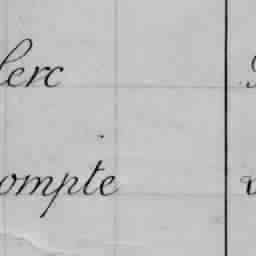 lerc
ompte